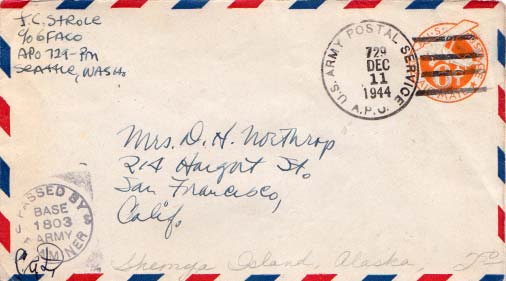 J.C. STROLE
c/o 6 FACO
APO 729 - PM
SEATTLE, WASH.
U.S. ARMY POSTAL SERVICE
729
DEC
11
1944
A.P.O.
6¢
Mrs. D. H. Northrop
214 St.
San Francisco,
Calif.
PASSED BY
BASE
1803
ARMY
EXAMINER
Shemya Island, Alaska,